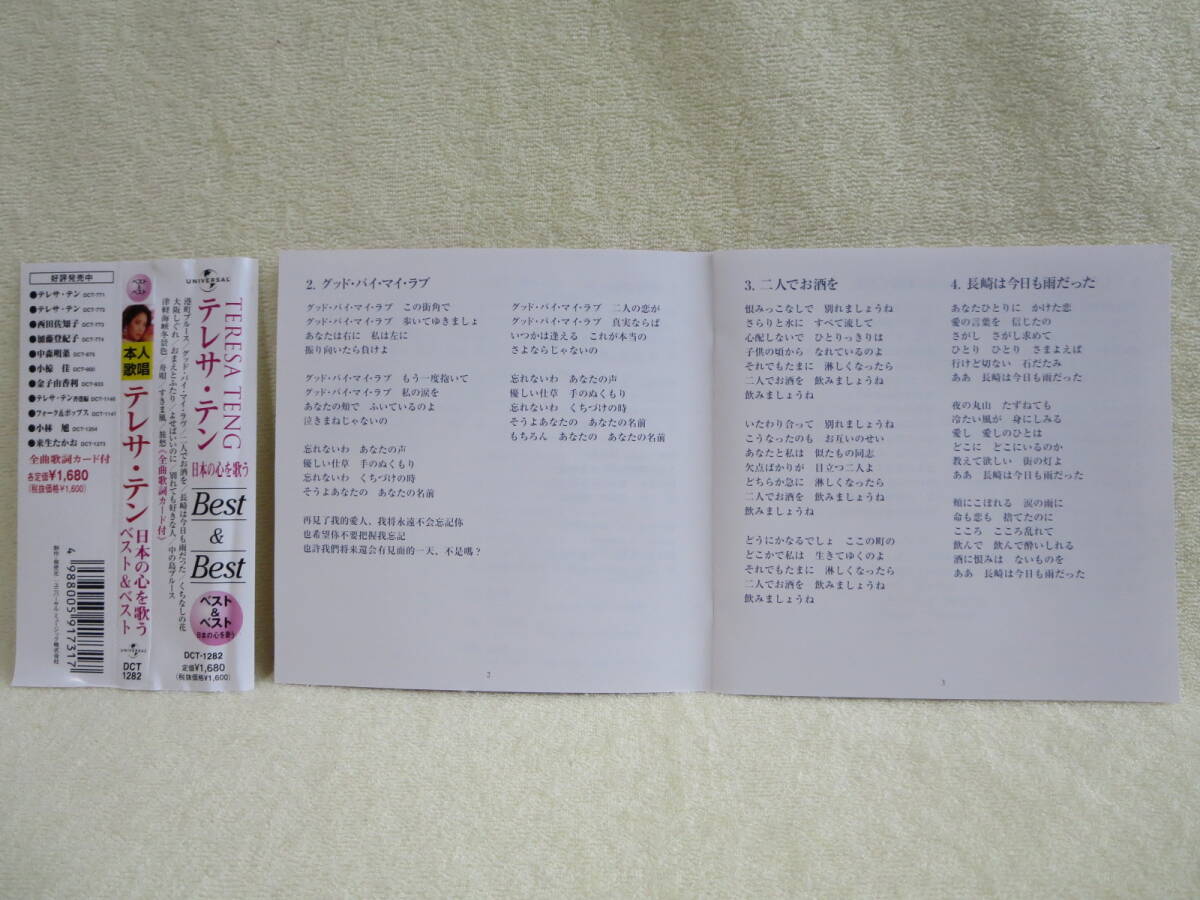 好評発売中
●テレサ・テン DCT-771
●テレサ・テン DCT-772
●西田佐知子 DCT-773
●加藤登紀子 DCT-774
●中森明菜 DCT-875
●小椋 佳 DCT-900
●金子由香利 DCT-933
●テレサ・テン DCT-1140
●フォーク&ポップス DCT-1141
●小林 旭 DCT-1204
●来生たかお DCT-1273
全曲歌詞カード付
各定価¥1,680
(税抜価格¥1,600)
4 988005 917317
ベスト&ベスト
本人歌唱
テレサ・テン
日本の心を歌う
ベスト&ベスト
UNIVERSAL
DCT
1282
UNIVERSAL
TERESA TENG
テレサ・テン
日本の心を歌う
Best
&
Best
港町ブルース/グッド・バイ・マイ・ラブ/二人でお酒を/長崎は今日も雨だった/くちなしの花
大阪しぐれ/おまえとふたり/よせばいいのに/別れても好きな人/中の島ブルース
津軽海峡冬景色/舟唄/すきま風/旅愁《全曲歌詞カード付》
ベスト
&
ベスト
日本の心を歌う
DCT-1282
定価¥1,680
(税抜価格¥1,600)
2. グッド・バイ・マイ・ラブ
グッド・バイ・マイ・ラブ この街角で
グッド・バイ・マイ・ラブ 歩いてゆきましょ
あなたは右に 私は左に
振り向いたら負けよ
グッド・バイ・マイ・ラブ もう一度抱いて
グッド・バイ・マイ・ラブ 私の涙を
あなたの頬で ふいているのよ
泣きまねじゃないの
忘れないわ あなたの声
優しい仕草 手のぬくもり
忘れないわ くちづけの時
そうよあなたの あなたの名前
再見了我的愛人、我将永遠不会忘記你
也希望你不要把握我忘記
也許我們将来還会有見面的一天、不是嗎？
グッド・バイ・マイ・ラブ 二人の恋が
グッド・バイ・マイ・ラブ 真実ならば
いつかは逢える これが本当の
さよならじゃないの
忘れないわ あなたの声
優しい仕草 手のぬくもり
忘れないわ くちづけの時
そうよあなたの あなたの名前
もちろん あなたの あなたの名前
2
3. 二人でお酒を
恨みっこなしで 別れましょうね
さらりと水に すべて流して
心配しないで ひとりっきりは
子供の頃から なれているのよ
それでもたまに 淋しくなったら
二人でお酒を 飲みましょうね
飲みましょうね
いたわり合って 別れましょうね
こうなったのも お互いのせい
あなたと私は 似たもの同志
欠点ばかりが 目立つ二人よ
どちらか急に 淋しくなったら
二人でお酒を 飲みましょうね
飲みましょうね
どうにかなるでしょ ここの町の
どこかで私は 生きてゆくのよ
それでもたまに 淋しくなったら
二人でお酒を 飲みましょうね
飲みましょうね
4. 長崎は今日も雨だった
あなたひとりに かけた恋
愛の言葉を 信じたの
さがし さがし求めて
ひとり ひとり さまよえば
行けど切ない 石だたみ
ああ 長崎は今日も雨だった
夜の丸山 たずねても
冷たい風が 身にしみる
愛し 愛しのひとは
どこに どこにいるのか
教えて欲しい 街の灯よ
ああ 長崎は今日も雨だった
頬にこぼれる 涙の雨に
命も恋も 捨てたのに
こころ こころ乱れて
飲んで 飲んで酔いしれる
酒に恨みは ないものを
ああ 長崎は今日も雨だった
3